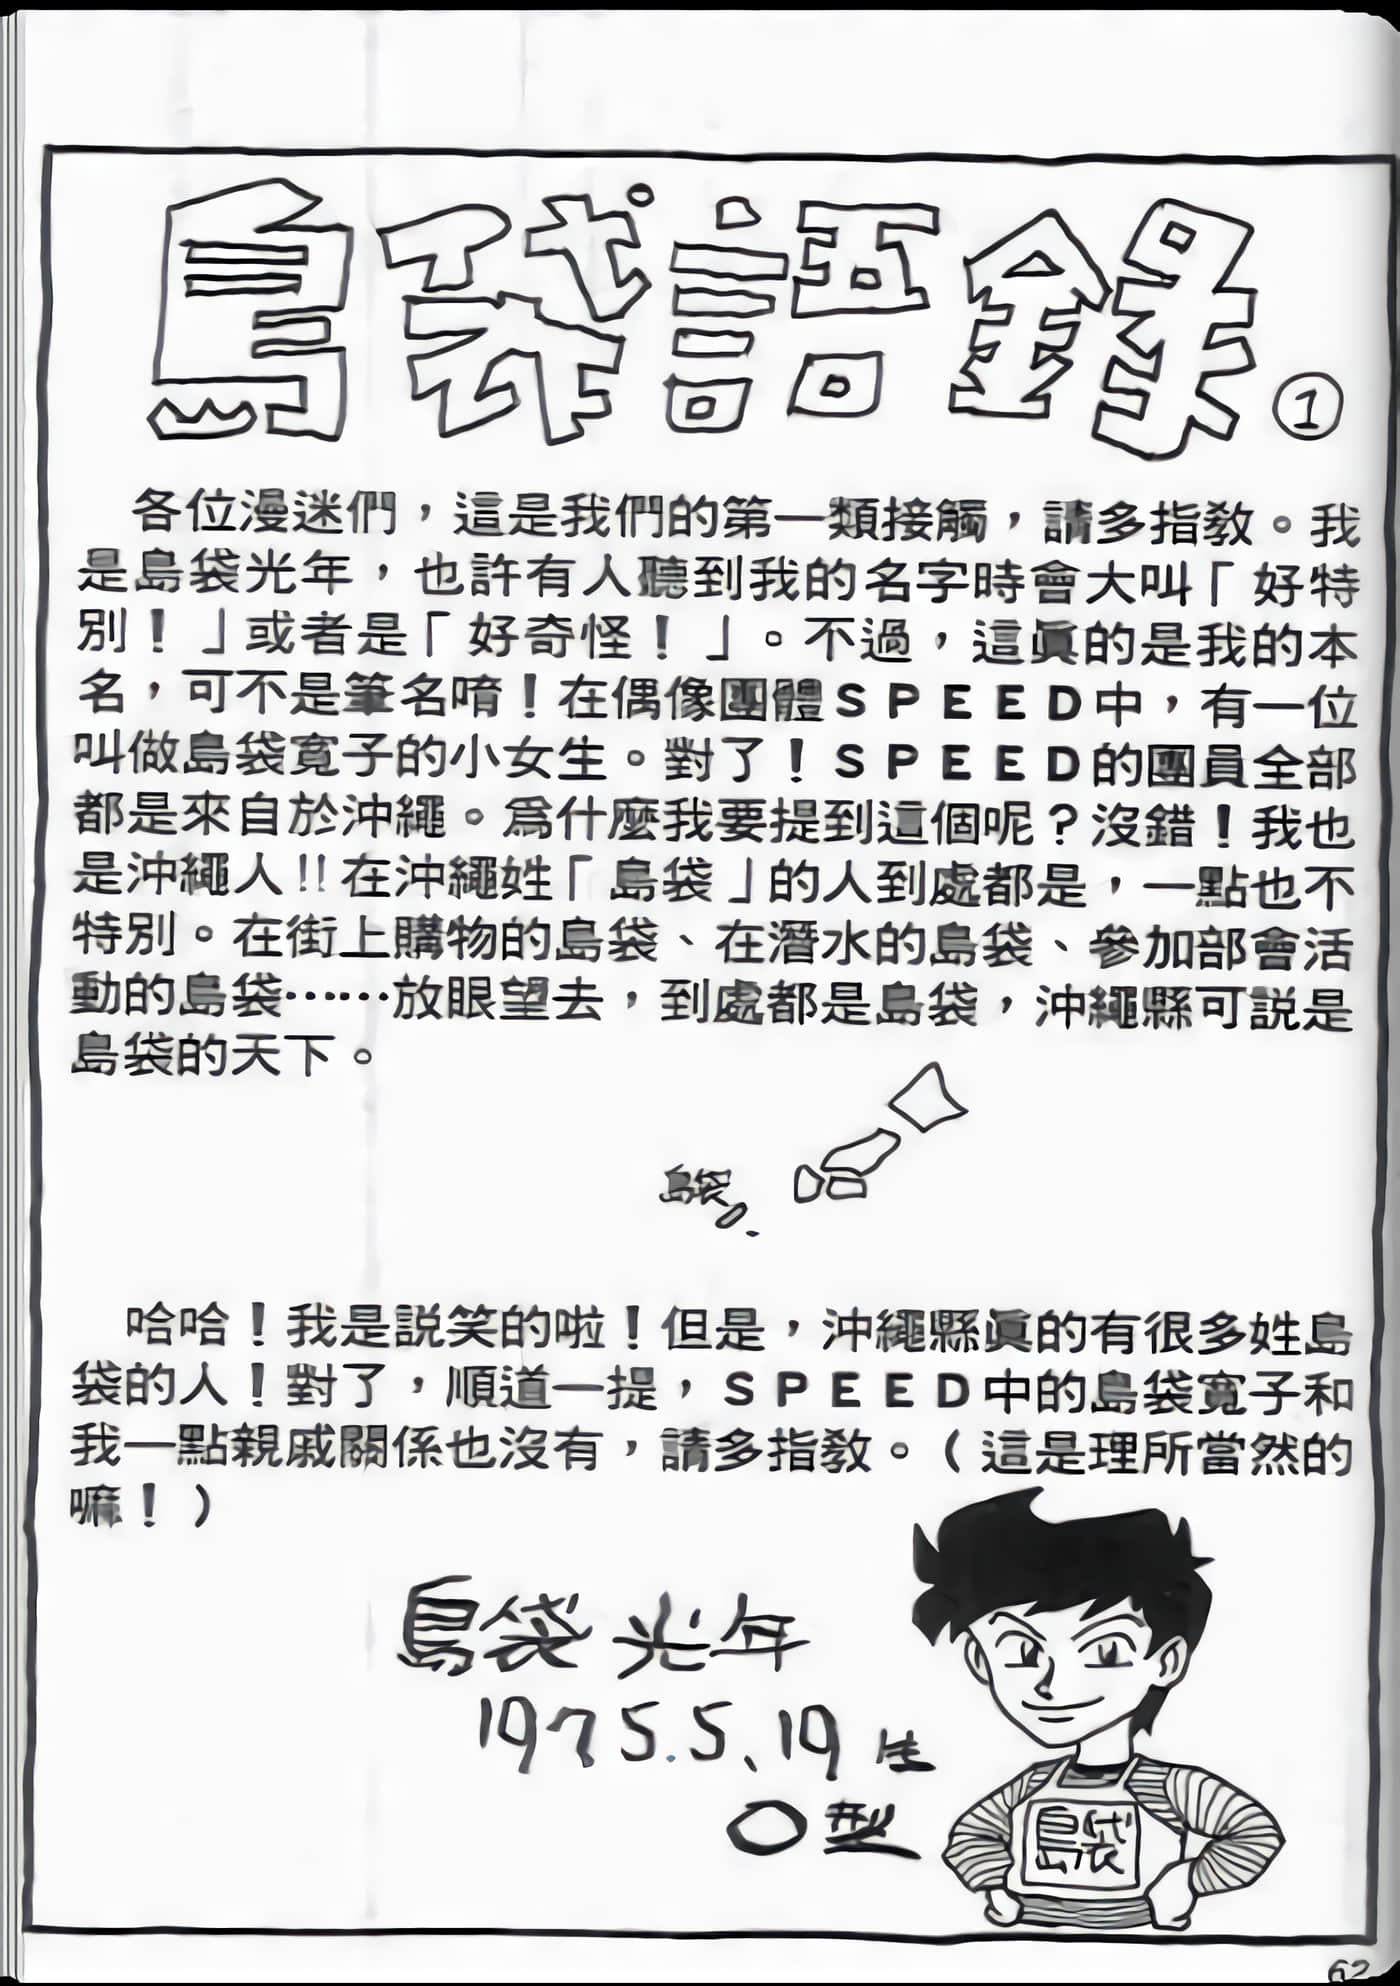 島袋語錄①
各位漫迷們，這是我們的第一類接觸，請多指教。我
是島袋光年，也許有人聽到我的名字時會大叫「好特
別！」或者是「好奇怪！」。不過，這眞的是我的本
名，可不是筆名唷！在偶像團體ＳＰＥＥＤ中，有一位
叫做島袋寬子的小女生。對了！ＳＰＥＥＤ的團員全部
都是來自於沖繩。爲什麼我要提到這個呢？沒錯！我也
是沖繩人!!在沖繩姓「島袋」的人到處都是，一點也不
特別。在街上購物的島袋、在潛水的島袋、參加部會活
動的島袋……放眼望去，到處都是島袋，沖繩縣可説是
島袋的天下。
島袋
哈哈！我是説笑的啦！但是，沖繩縣眞的有很多姓島
袋的人！對了，順道一提，ＳＰＥＥＤ中的島袋寬子和
我一點親戚關係也沒有，請多指教。（這是理所當然的
嘛！）
島袋光年
1975.5.19生
O型
島袋
62